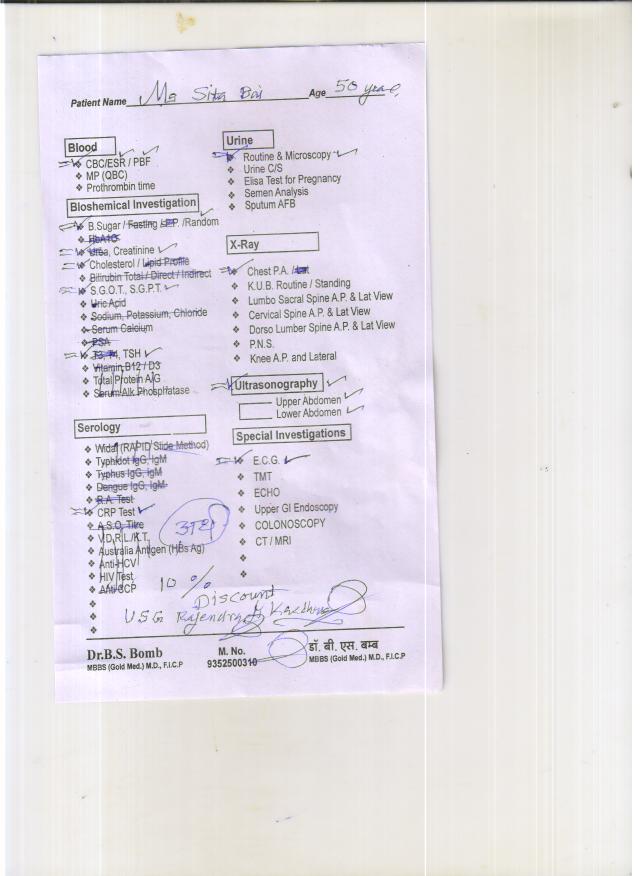 Patient Name Ms Sita Bai Age 50 year
Blood
CBC/ESR / PBF
MP (QBC)
Prothrombin time
Bioshemical Investigation
B.Sugar / Fasting / P.P. /Random
HbA1C
Urea, Creatinine
Cholesterol / Lipid Profile
Bilirubin Total / Direct / Indirect
S.G.O.T., S.G.P.T.
Uric Acid
Sodium, Potassium, Chloride
Serum Calcium
PSA
T3, T4, TSH
Vitamin B12 / D3
Total Protein A/G
Serum Alk Phosphatase
Serology
Widal (RAPID/Slide Method)
Typhidot IgG, IgM
Typhus IgG, IgM
Dengue IgG, IgM
R.A. Test
CRP Test
A.S.O. Titre
V.D.R.L./K.T.
Australia Antigen (HBs Ag)
Anti-HCV
HIV Test
Anti-CCP
Urine
Routine & Microscopy
Urine C/S
Elisa Test for Pregnancy
Semen Analysis
Sputum AFB
X-Ray
Chest P.A. /
K.U.B. Routine / Standing
Lumbo Sacral Spine A.P. & Lat View
Cervical Spine A.P. & Lat View
Dorso Lumber Spine A.P. & Lat View
P.N.S.
Knee A.P. and Lateral
Ultrasonography
Upper Abdomen
Lower Abdomen
Special Investigations
E.C.G.
TMT
ECHO
Upper GI Endoscopy
COLONOSCOPY
CT / MRI
10 %
Discount
USG Rajendra
Dr.B.S. Bomb
MBBS (Gold Med.) M.D., F.I.C.P
M. No.
9352500310
डॉ. बी. एस. बम्ब
MBBS (Gold Med.) M.D., F.I.C.P